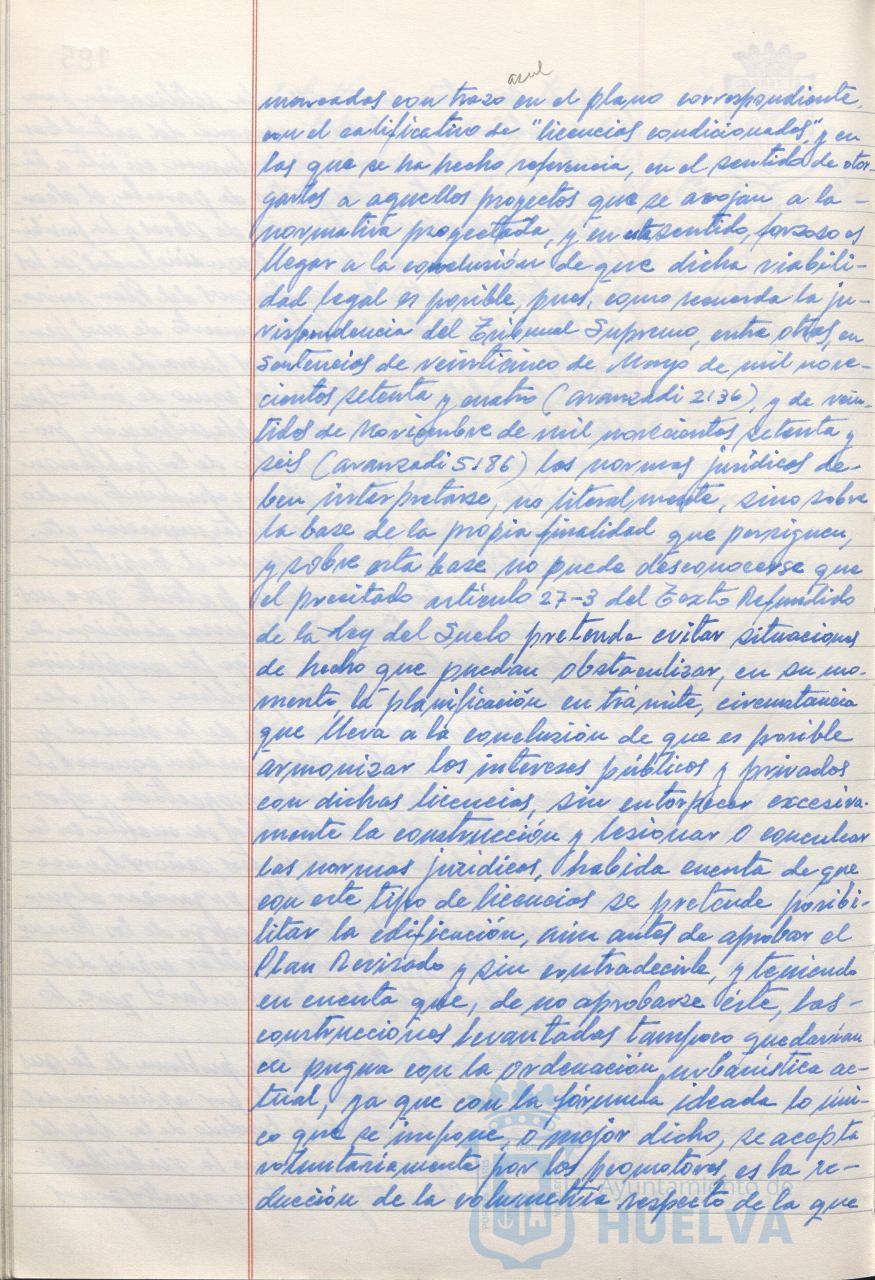 azul
marcadas con trazo en el plano correspondiente,
con el calificativo de "licencias condicionadas", y en
las que se ha hecho referencia, en el sentido de otor-
garlas a aquellos proyectos que se acojan a la -
normativa proyectada, y en este sentido, forzoso es
llegar a la conclusión de que dicha viabili-
dad legal es posible, pues, como recuerda la ju-
rispondencia del Tribunal Supremo, entre otras, en
sentencias de veinticinco de Mayo de mil nove-
cientos setenta y cuatro (aranzadi 2136), y de vein-
tidos de Noviembre de mil novecientos setenta y
seis (aranzadi 5186) las normas jurídicas de-
ben interpretarse, no literalmente, sino sobre
la base de la propia finalidad que persiguen,
y sobre esta base no puede desconocerse que
el precitado artículo 27-3 del Texto Refundido
de la Ley del Suelo pretende evitar situaciones
de hecho que puedan obstaculizar, en su mo-
mento, la planificación en trámite, circunstancia
que lleva a la conclusión de que es posible
armonizar los intereses públicos y privados
con dichas licencias, sin entorpecer excesiva-
mente la construcción y lesionar o conculcar
las normas jurídicas, habida cuenta de que
con este tipo de licencias se pretende posibi-
litar la edificación, aún antes de aprobar el
Plan Revisado y sin contradecirle, y teniendo
en cuenta que, de no aprobarse éste, las -
construcciones levantadas tampoco quedarían
en pugna con la Ordenación urbanística ac-
tual, ya que con la fórmula ideada lo úni-
co que se impone, o mejor dicho, se acepta
voluntariamente por los promotores, es la re-
ducción de la volumetría respecto de la que
Ayuntamiento de
HUELVA